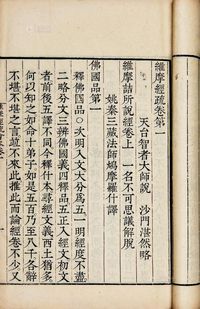 維摩經疏卷第一
天台智者大師說　沙門湛然略
維摩詰所說經卷上　一名不可思議解脫
姚秦三藏法師鳩摩羅什譯
佛國品第一
釋佛國品〇次明入文大分為五一明經度不盡
二略分文三辨佛國義四釋品五正入經文初文
者前後五譯不同今釋什本尋經文義西土猶多
何以知之如命十弟子如是五百乃至八千各辭
不堪不堪之言詎不來此推此而論經卷不少又